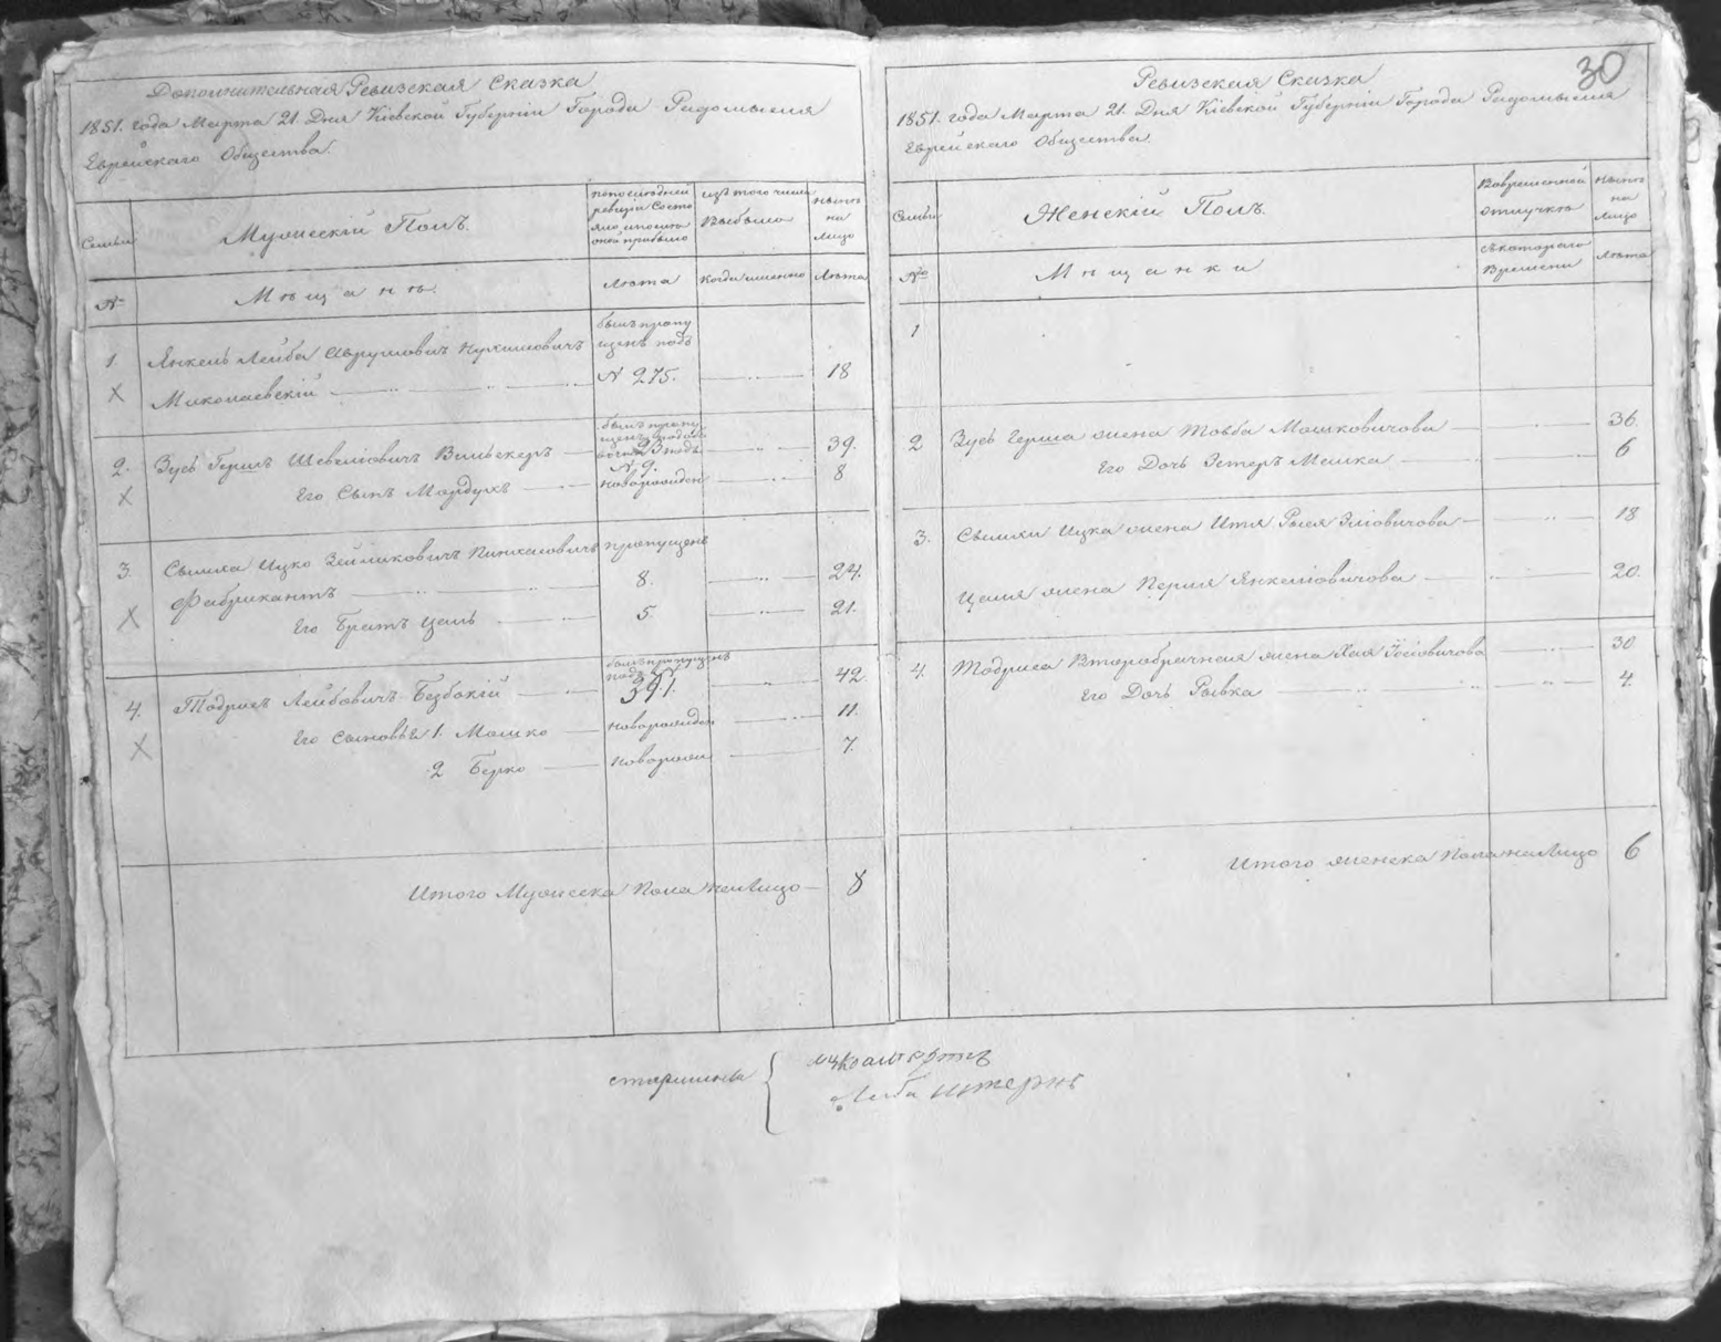 Дополнительная Ревизская Сказка
1851. года Марта 21. Дня Кіевской Губерніи Города Радомысля
Еврейскаго Общества.
Семьи
Мужескій Полъ.
по последней
ревизіи Состо
яло и после
оной прибыло
изъ того числа
Выбыло
ныне
на
Лицо
№
Мещане.
Лета
Когда именно
Лета
1.
Янкель Лейба Аврумовичъ Нухимовичъ
Николаевскій
былъ пропу
щенъ подъ
№ 275.
18
2.
Зусь Гершъ Шевелiовичъ Вильскеръ
былъ пропу
№ 9.
39.
Его Сынъ Мордухъ
новорожден
8
3.
Сымха Ицко Зейликовичъ Пинхасовичъ пропущенъ
Фабрикантъ
8.
24.
Его Братъ Цаль
5.
21.
4.
Тодрисъ Лейбовичъ Безбокій
былъ пропущенъ
подъ №
391.
42.
Его Сыновья 1. Мошко
новорожден
11.
2 Берко
новорожд
7.
Итого Мужеска Пола на Лицо
8
30
Ревизская Сказка
1851. года Марта 21. Дня Кіевской Губерніи Города Радомысля
Еврейскаго Общества.
Семьи
Женскій Полъ.
Во временной
отлучке
ныне
на
Лицо
№
Мещанки
съ котораго
Времени
Лета
1
2
Зусь Герша жена Товба Мошковичова
36.
Его Дочь Эстеръ Малка
6
3.
Сымхи Ицка жена Итя Рыся Эліовичова
18
Цаля жена Перля Янкеліовичова
20.
4.
Тодриса Второбрачная жена Хая Іосіовичова
30
Его Дочь Рывка
4.
Итого женска Пола на Лицо
6
старшины
Лейба Штернъ